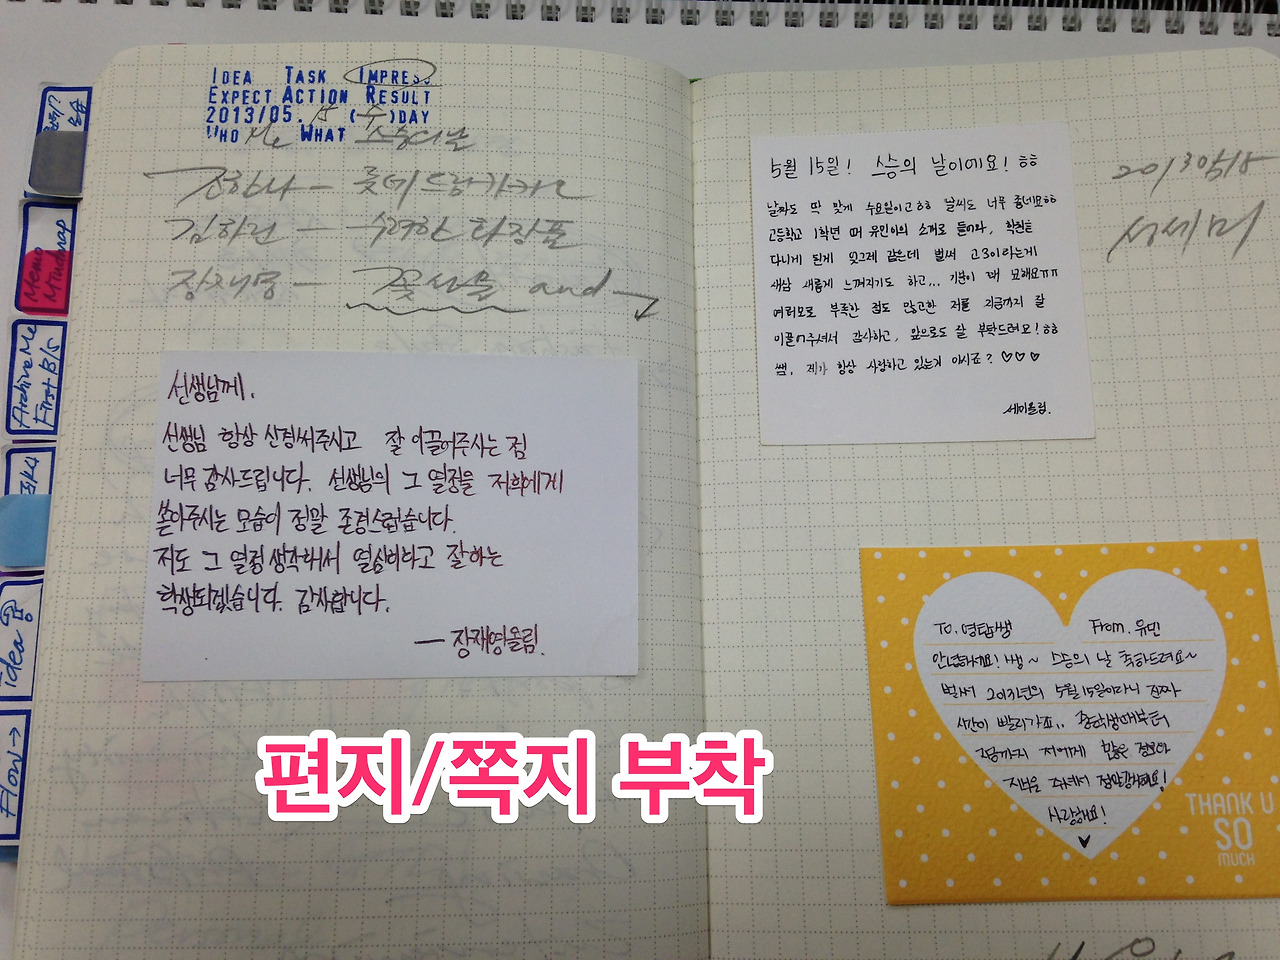 IDEA TASK IMPRESS
EXPECT ACTION RESULT
2013/05. 15 (수)DAY
WHO Me WHAT 스승의날
전하나 - 롯데드림카카오
김하런 - 수려한 화장품
장재영 - 꽃선물 and →
선생님께.
선생님 항상 신경써주시고 잘 이끌어주시는 점
너무 감사드립니다. 선생님의 그 열정을 저희에게
쏟아주시는 모습이 정말 존경스럽습니다.
저도 그 열정 생각해서 열심히하고 잘하는
학생되겠습니다. 감사합니다.
— 장재영올림.
편지/쪽지 부착
5월 15일! 스승의 날이에요! ㅎㅎ
날짜도 딱 맞게 수요일이고ㅎㅎ 날씨도 너무 좋네요ㅎㅎ
고등학교 1학년 때 유민이의 소개로 들어와, 학원을
다니게 된게 엊그제 같은데 벌써 고3이라는게
새삼 새롭게 느껴지기도 하고... 기분이 묘해요ㅠㅠ
여러모로 부족한 점도 많고한 저를 지금까지 잘
이끌어주셔서 감사하고, 앞으로도 잘 부탁드려요! ㅎㅎ
쌤, 제가 항상 사랑하고 있는거 아시죠? ♡♡♡
세미올림.
2013 0515
성세미
To. 영탑쌤 From. 유민
안녕하세요! 쌤~ 스승의 날 축하드려요~
벌써 2013년의 5월 15일이라니 진짜
시간이 빨리가죠.. 중학생때부터
고3까지 저에게 많은 정보와
지식을 주셔서 정말감사해요!
사랑해요!
♥
THANK U
SO
MUCH
Memo
Mindmap
Archive Me
First 5/8
idea
Flow →